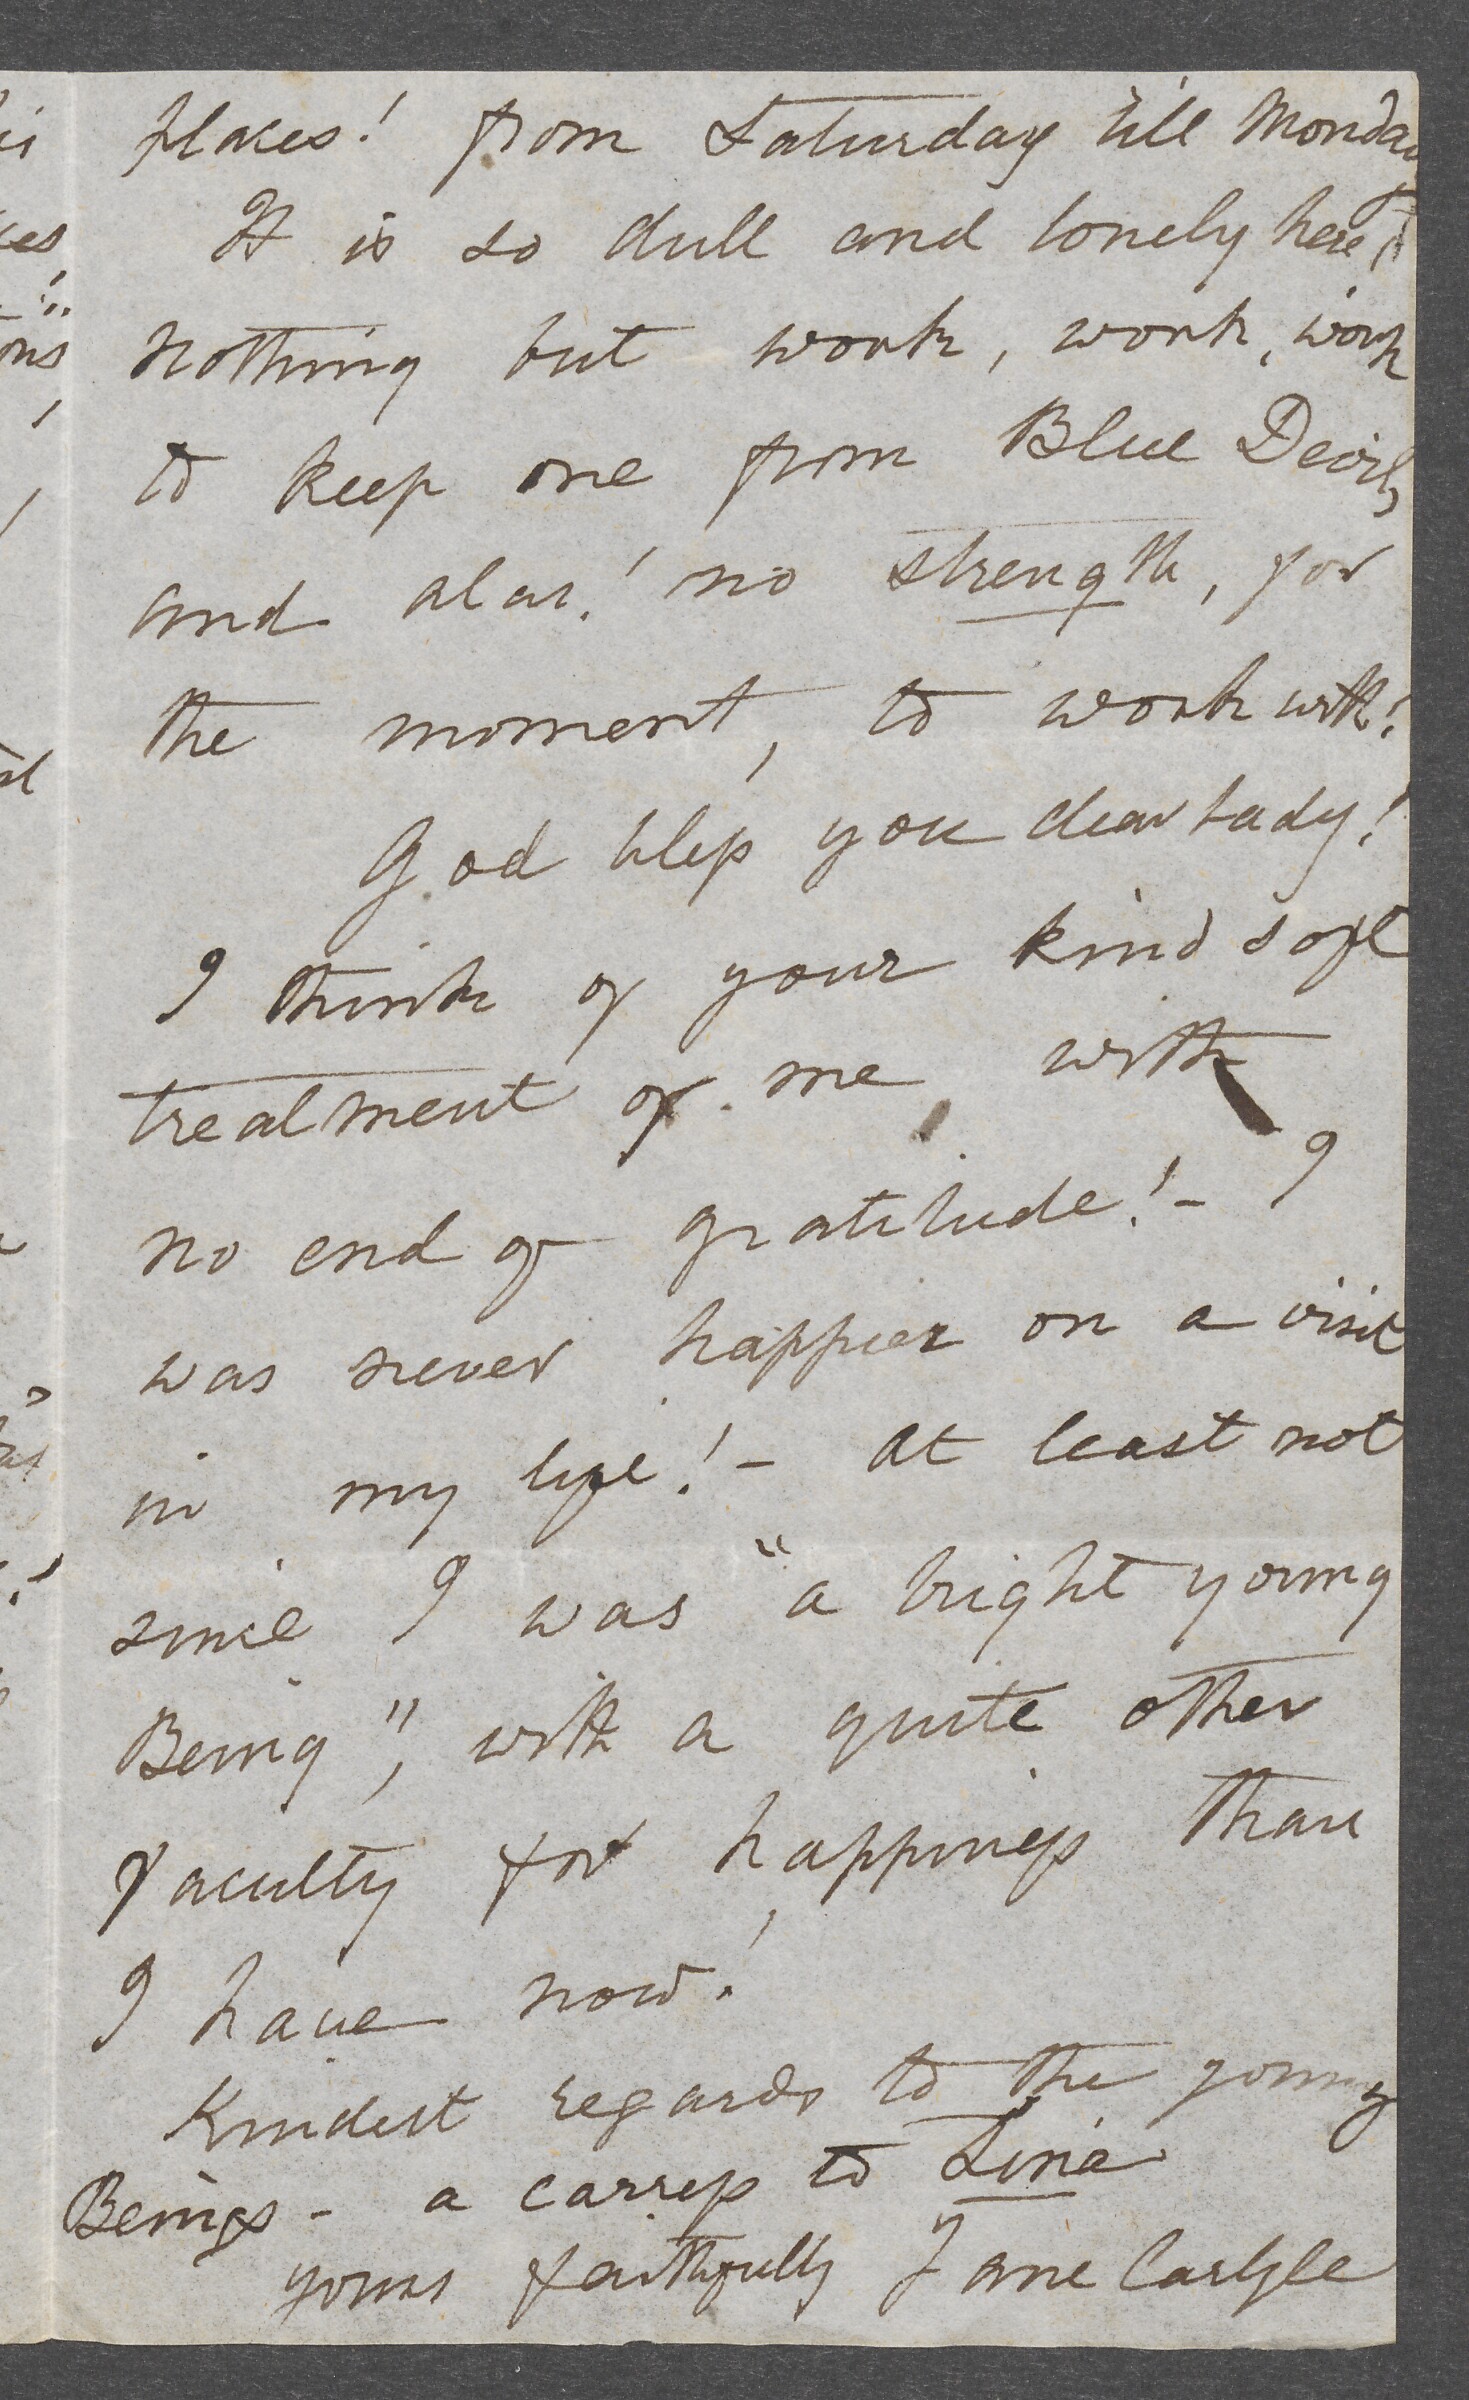 places! from Saturday till Monday
It is so dull and lonely here,
nothing but work, work, work
to keep one from Blue Devils,
and alas! no strength, for
the moment, to work with!
God bless you dear Lady!
I think of your kind soft
treatment of me with
no end of gratitude! - I
was never happier on a visit
in my life! - at least not
since I was "a bright young
Being", with a quite other
faculty for happiness than
I have now!
Kindest regards to the young
Beings - a carress to Linie
yours faithfully Jane Carlyle